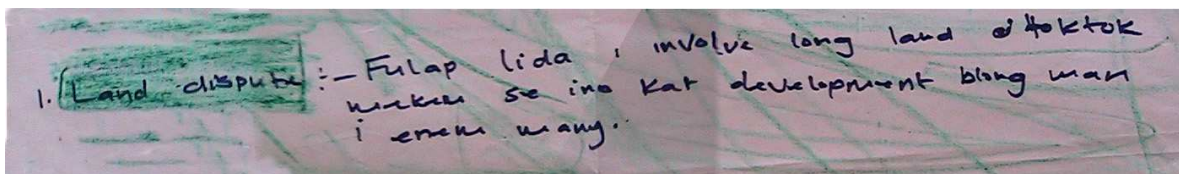 1. Land dispute :- Fulap lida i involve long land toktok
mekem se ino kat development blong man
i